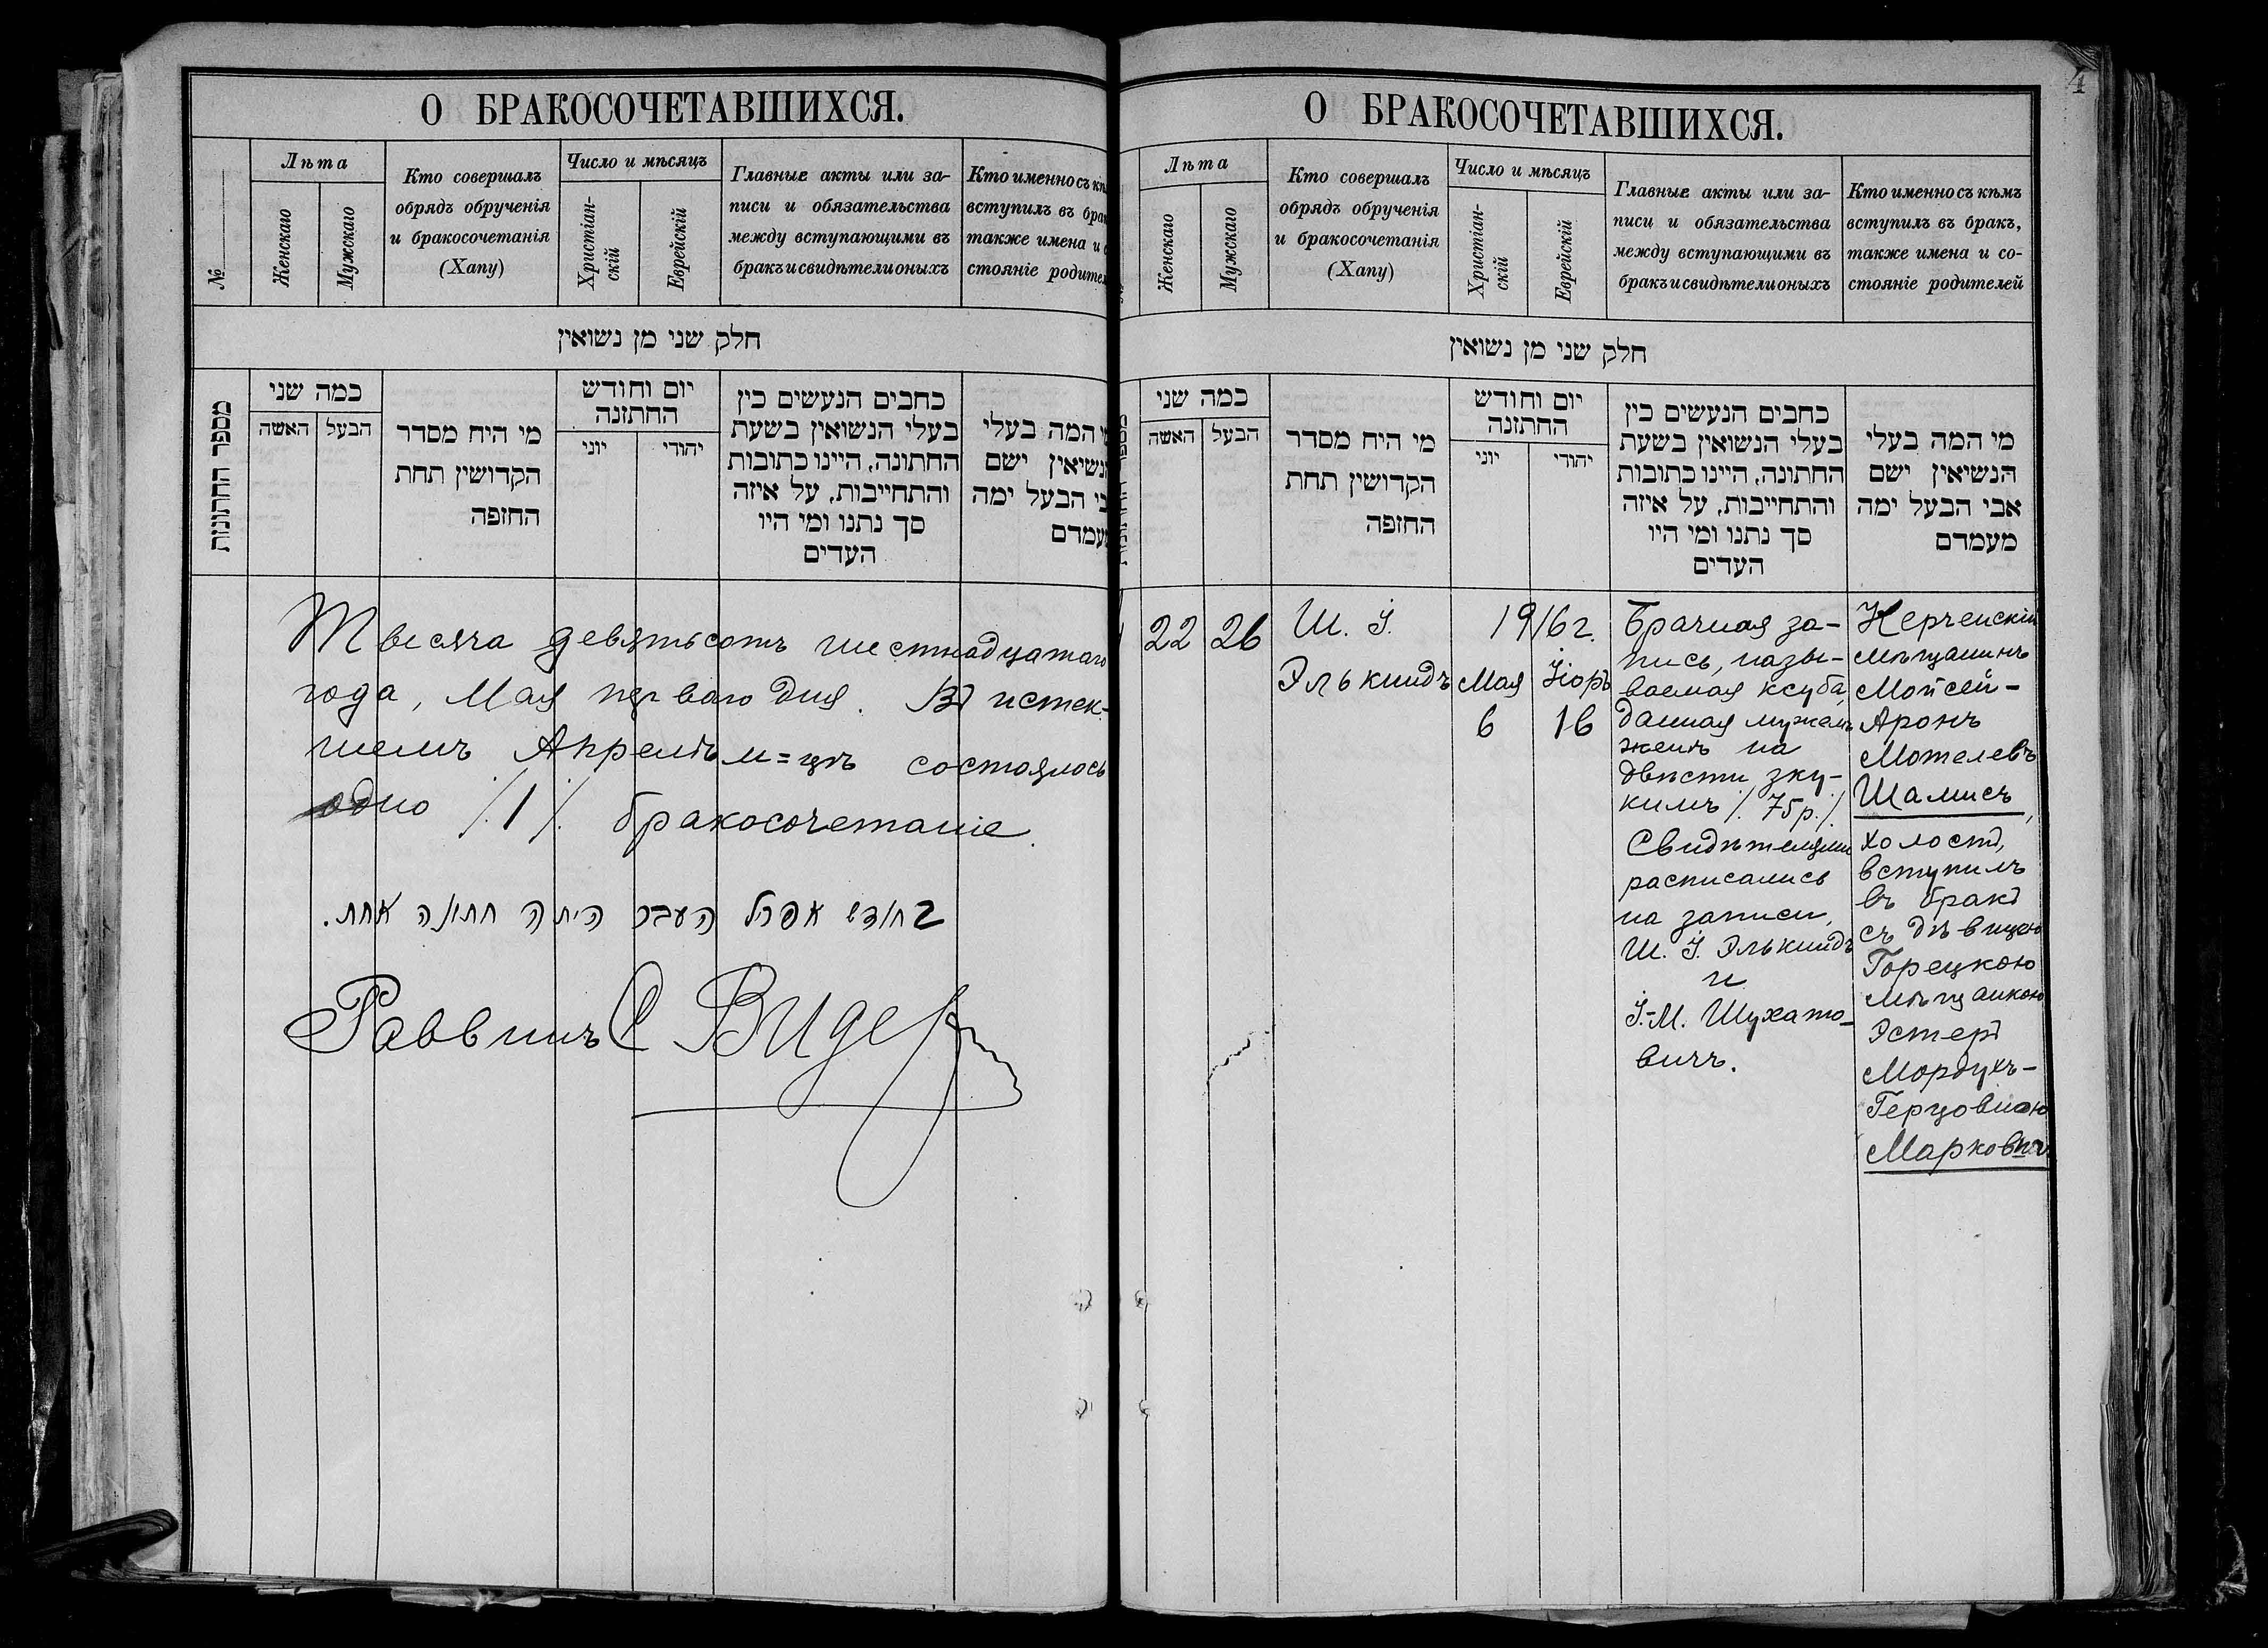 О БРАКОСОЧЕТАВШИХСЯ.
№
Лѣта
Женскаго
Мужскаго
Кто совершалъ
обрядъ обрученія
и бракосочетанія
(Хапу)
Число и мѣсяцъ
Христіан-
скій
Еврейскій
Главные акты или за-
писи и обязательства
между вступающими въ
бракъ и свидѣтели оныхъ
Кто именно съ кѣ
вступилъ въ бра
также имена и с
стояніе родител
חלק שני מן נשואין
מספר החתונות
כמה שני
האשה
הבעל
מי היח מסדר
הקדושין תחת
החזפה
יום וחודש
החתזנה
יוני
יהודי
כחבים הנעשים כין
בעלי הנשואין בשעת
החתונה, היינו כתובות
והתחייבות, על איזה
סך נתנו ומי היו
העדים
המה בעלי
נשיאין ישם
בי הבעל ימה
מעמדם
Тысяча девятьсотъ шестнадцатаго
года, Мая перваго дня. Въ истек-
шемъ Апрелѣ м=цѣ состоялось
одно /.1/. бракосочетаніе.
בחודש אפריל העבר היתה חתונה אחת.
Раввинъ С Видер
4
О БРАКОСОЧЕТАВШИХСЯ.
Лѣта
Женскаго
Мужскаго
Кто совершалъ
обрядъ обрученія
и бракосочетанія
(Хапу)
Число и мѣсяцъ
Христіан-
скій
Еврейскій
Главные акты или за-
писи и обязательства
между вступающими въ
бракъ и свидѣтели оныхъ
Кто именно съ кѣмъ
вступилъ въ бракъ,
также имена и со-
стояніе родителей
חלק שני מן נשואין
כמה שני
האשה
הבעל
מי היח מסדר
הקדושין תחת
החזפה
יום וחודש
החתזנה
יוני
יהודי
כחבים הנעשים כין
בעלי הנשואין בשעת
החתונה, היינו כתובות
והתחייבות, על איזה
סך נתנו ומי היו
העדים
מי המה בעלי
הנשיאין ישם
אבי הבעל ימה
מעמדם
22
26
Ш. I.
Элькиндъ
1916 г.
Мая
6
Iіоръ
16
Брачная за-
пись, назы-
ваемая ксуба,
данная мужемъ
женѣ на
двѣсти зку-
кимъ /.75р./.
Свидѣтелями
расписались
на записи,
Ш. I. Элькиндъ
и
I.-М. Шухато-
вичъ.
Керченскій
мѣщанинъ
Мойсей-
Аронъ
Мотелевъ
Шамисъ,
холостъ,
вступилъ
въ бракъ
съ дѣвицею
Горецкою
мѣщанкою
Эстеръ
Мордухъ-
Герцовною
Марковичъ